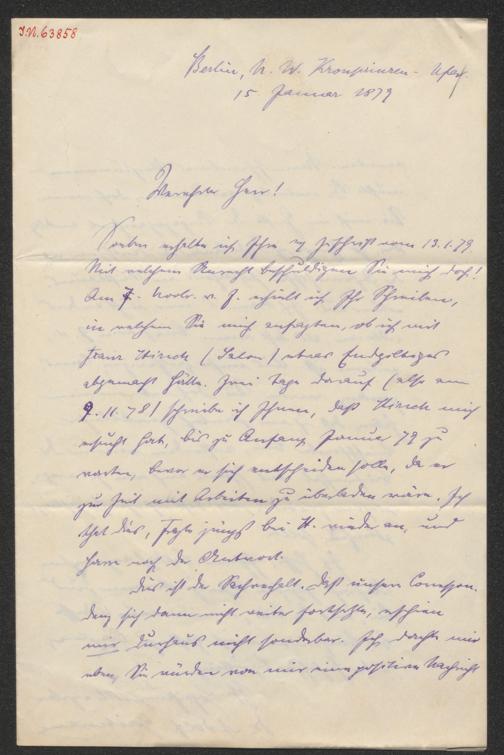 I.N. 63858
Berlin, N. W. Kronprinzen-Ufer
15 Januar 1879
Verehrter Herr!
Soeben erhalte ich Ihre Zuschrift vom 13.1.79.
Mit welchem Unrecht beschuldigen Sie mich doch!
Am 7. Novbr. v. J. erhielt ich Ihr Schreiben,
in welchem Sie mich anfragten, ob ich mit
Franz Hirsch (Salon) etwas Endgiltiges
abgemacht hätte. Zwei Tage darauf (also am
9.11.78) schreibe ich Ihnen, daß Hirsch mich
ersucht hat, bis zu Anfang Januar 79 zu
warten, bevor er sich entscheiden solle, da er
zur Zeit mit Arbeiten zu überladen wäre. Ich
that dies, fragte jüngst bei H. wieder an, und
harre noch der Antwort.
Dies ist der Sachverhalt. Daß unsere Correspon-
denz sich dann nicht weiter fortsetzte, erschien
mir durchaus nicht sonderbar. Ich dachte mir
eben, Sie würden von mir eine positive Nachricht